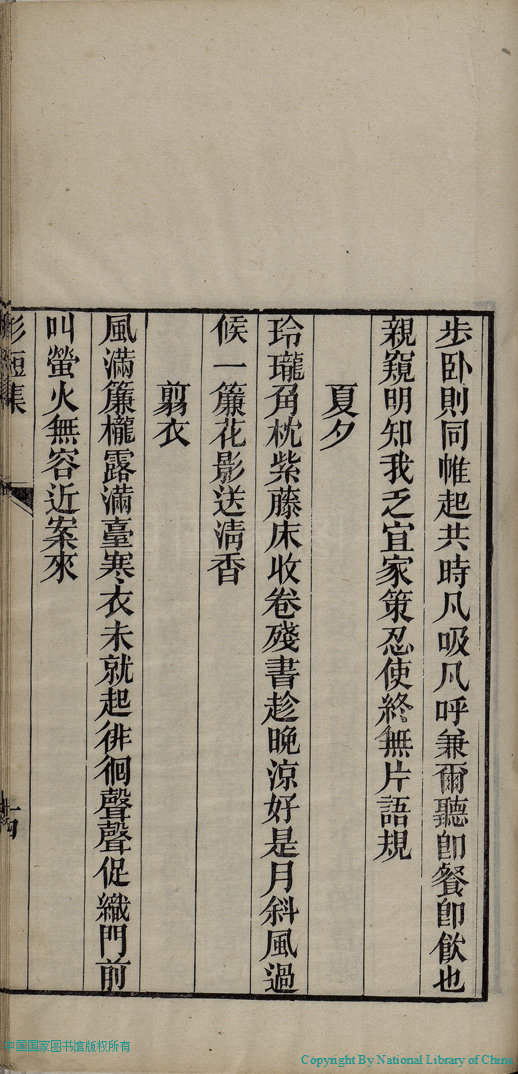 步卧則同帷起共時凡吸凡呼兼爾聽卽餐卽飮也
親窺明知我乏宜家策忍使終無片語規
夏夕
玲瓏角枕紫藤床收卷殘書趁晩涼好是月斜風過
候一簾花影送清香
剪衣
風滿簾櫳露滿臺寒衣未就起徘徊聲聲促織門前
叫螢火無容近案來
影短集
十四
中国国家图书馆版权所有
Copyright By National Library of China